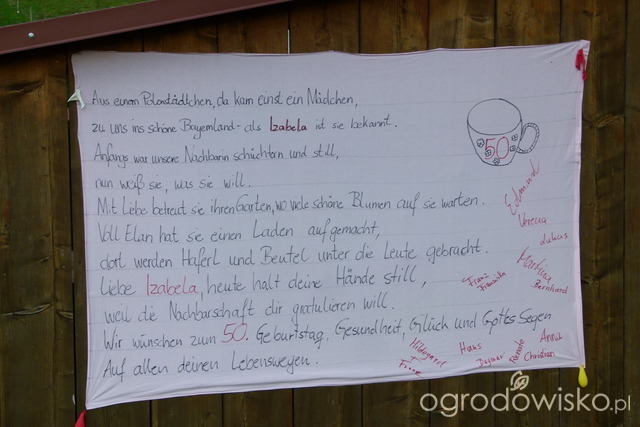 Aus einem Polenstädtchen, da kam einst ein Mädchen,
zu uns ins schöne Bayernland - als Izabela ist sie bekannt.
Anfangs war unsere Nachbarin schüchtern und still,
nun weiß sie, was sie will.
Mit Liebe betreut sie ihren Garten, wo viele schöne Blumen auf sie warten.
Voll Elan hat sie einen Laden aufgemacht,
dort werden Haferl und Beutel unter die Leute gebracht.
Liebe Izabela, heute halt deine Hände still,
weil die Nachbarschaft dir gratulieren will.
Wir wünschen zum 50. Geburtstag, Gesundheit, Glück und Gottes Segen
Auf allen deinen Lebenswegen.
50
Edmund
Verena
Lukas
Martina
Bernhard
Franz
Hildegard
+
Franz
Hans
Dagmar
Renate
Anna
Christian
ogrodowisko.pl